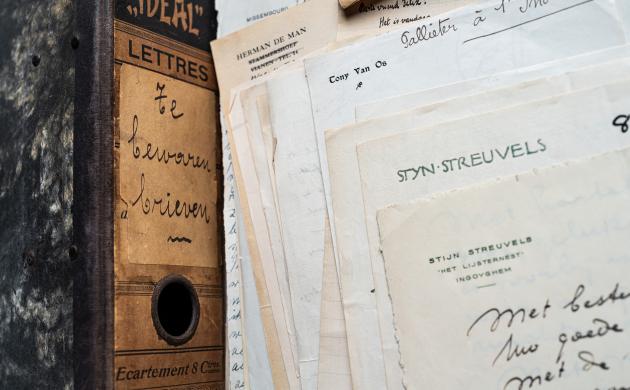 „IDEAL"
LETTRES
Te
bewaren
brieven
Ecartement 8 C
MISSEMBOURG
HERMAN DE MAN
VIANEN - TEL. 71
Het is vandaag
Pallieter à l'
Tony Van Os
STYN·STREUVELS
8
STIJN STREUVELS
"HET LIJSTERNEST"
INGOYGHEM
Met beste
goede
met de